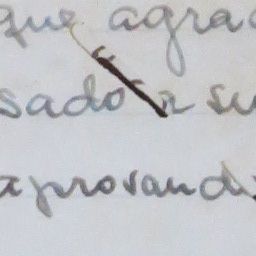 que agrad
sado r su
aprovandi